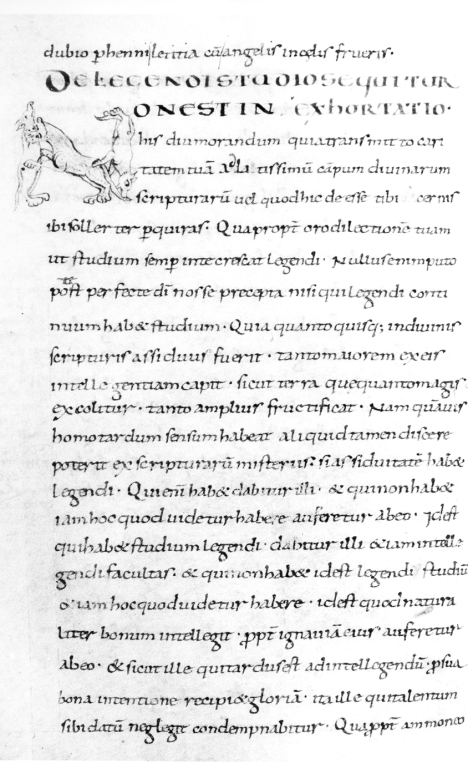 dubio phenni letitia cū angelis inodis frueris.
DE LEGENDI STUDIO SEQUITUR
NON EST IN EXHORTATIO.
his diu morandum quia transmitto cari
tatem tuā ad latissimū cāpum diuinarum
scripturarū uel quod hic deesse tibi cernis
ibi sollerter pquiras. Quapropt oro dilectionē tuam
ut studium semp in te crescat legendi. Nullus enim puto
potest perfecte dī nosse precepta nisi qui legendi conti
nuum hab& studium. Quia quanto quisq; in diuinis
scripturis assiduus fuerit. tanto maiorem ex eis
intellegentiam capit. sicut terra que quanto magis
excolitur. tanto amplius fructificat. Nam quāuis
homo tardum sensum habeat aliquid tamen discere
poterit ex scripturarū misteriis. si assiduitatē hab&
legendi. Qui enī hab& dabitur illi. & qui non hab&
iam hoc quod uidetur habere auferetur ab eo. Id est
qui hab& studium legendi. dabitur illi &iam intelle
gendi facultas. & qui non hab& id est legendi studiū
&iam hoc quod uidetur habere. id est quod natura
liter bonum intellegit. ppt ignauiā eius auferetur
ab eo. & sicut ille qui tardus est ad intellegendū. p sua
bona intentione recipi& gloriā. ita ille qui talentum
sibi datū neglegit condempnabitur. Qua ppt ammoneo